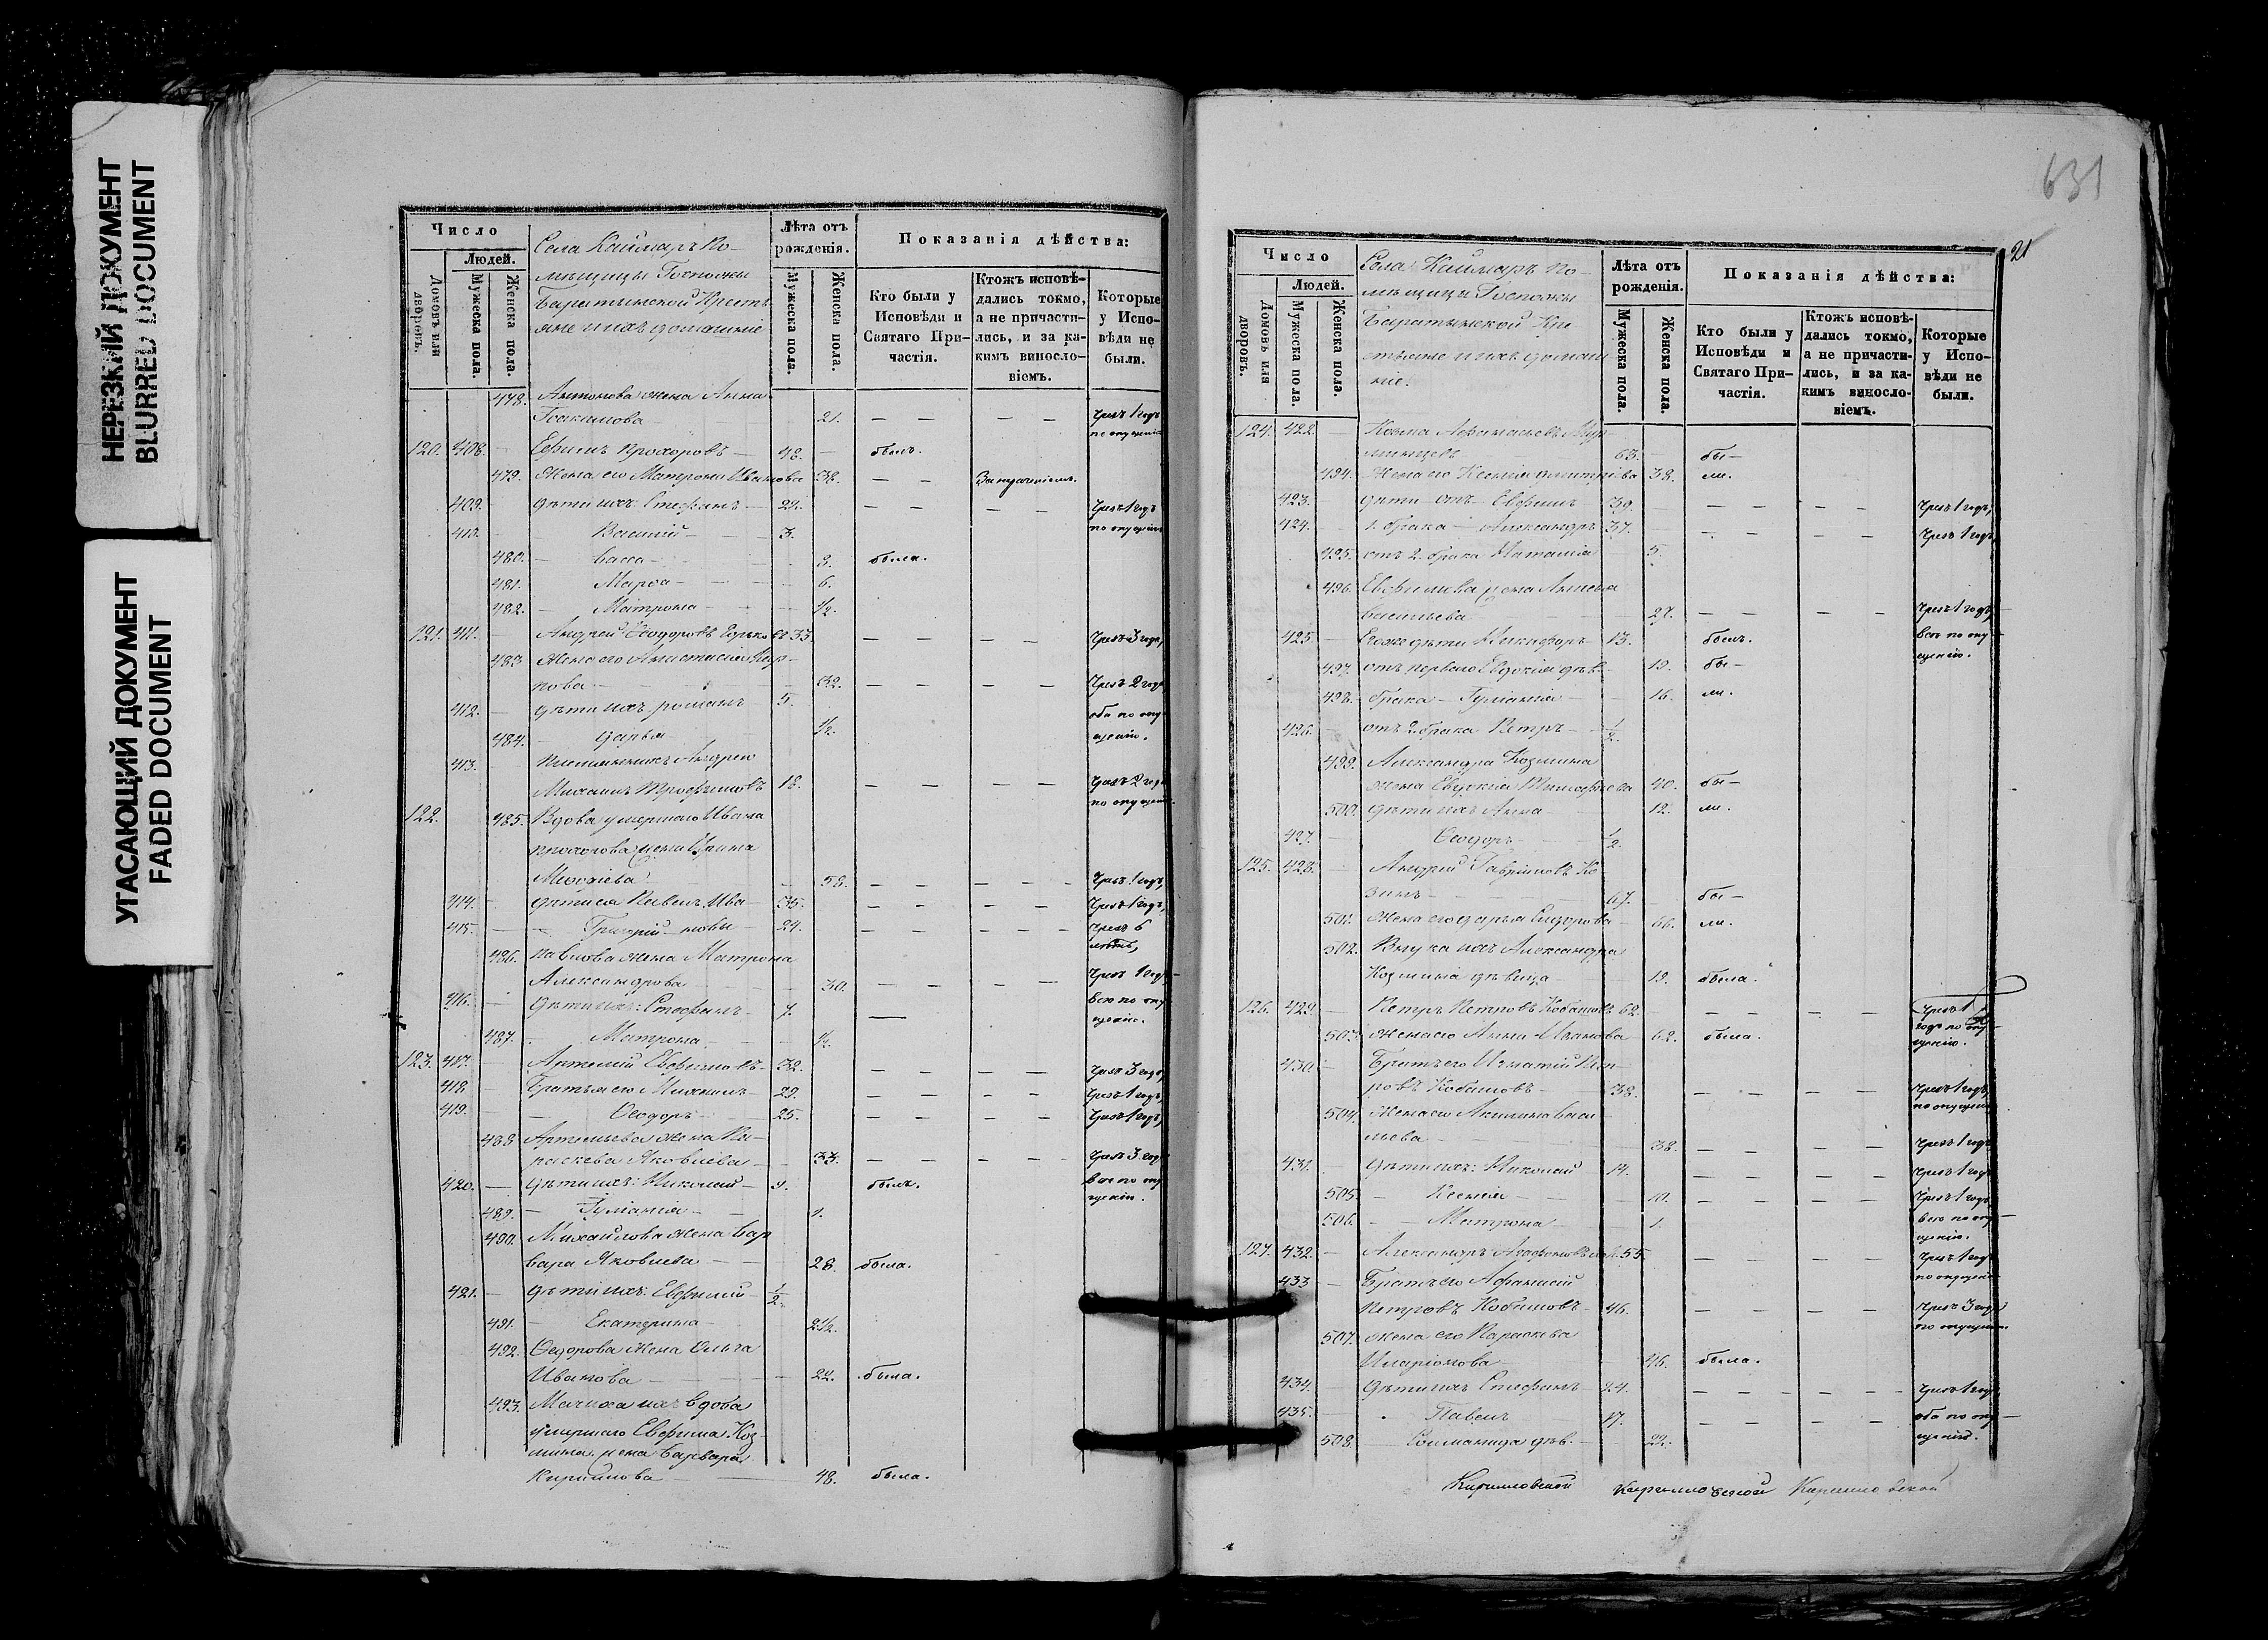 НЕРЕЗКИЙ ДОКУМЕНТ
BLURRED DOCUMENT
УГАСАЮЩИЙ ДОКУМЕНТ
FADED DOCUMENT
Число
Людей.
Домовъ или дворовъ.
Мужеска пола.
Женска пола.
Села Каймаръ По-
мѣщицы Госпожи
Баратынской Кресть
яне и ихъ домашніе
Лѣта отъ рожденія.
Мужеска пола.
Женска пола.
Показанія дѣйства:
Кто были у Исповѣди и Святаго При-частія.
Ктожъ исповѣ-дались токмо, а не причасти-лись, и за ка-кимъ виносло-віемъ.
Которые у Испо-вѣди не были.
478. Антонова жена Анна
Іоакимова 21. — — — — Чрезъ 1 годъ
по опущенію
120. 408. Ефимъ Прохоровъ — 48. — былъ.
479. Жена его Матрона Иванова 38. — —
409. дѣти ихъ: Стефанъ — 22. — — — — Чрезъ 1 годъ
410. Василій — 3. по опущенію
480. — Васса — 8. была.
481. Марѳа — 6.
482. — Матрона — 1/2.
121. 411. — Андрей Ѳеодоровъ 33. — — — — Чрезъ 3 года,
483. Жена его Анастасія
32. — — — — Чрезъ 2 года
412. — дѣти ихъ Романъ 5. оба по опу
484. — Дарья 1/2. щенію.
413. Племянникъ Андрея
Михаилъ 18. — — — — Чрезъ 2 года
по опущенію.
122. 485. Вдова умершаго Ивана
Прохорова жена Ирина
58. — — — — Чрезъ 1 годъ,
414. — дѣти ея Павелъ Ива — 35. — — — — Чрезъ 1 годъ,
415. — Григорій — новы — 24. — — — — Чрезъ 6
лѣтъ,
486. Павлова жена Матрона
Александрова 30. — — — — Чрезъ 1 годъ —
416. — дѣти ихъ: Стефанъ — 7. — всѣ по опу
щенію.
487. Матрона 1/2.
123. 417. — Артемій Евфимовъ — 32. — — — — Чрезъ 3 года,
418. — Братья его Михаилъ — 29. — — — — Чрезъ 1 годъ,
419. — Ѳеодоръ — 25. — — — — Чрезъ 1 годъ,
488. Артемьева жена Па-
раскева Яковлева — 33. — — — — Чрезъ 3 года
420. — дѣти ихъ: Николай — 9. былъ. всѣ по опу
щенію.
489. — Іуліанія — 1.
490. Михайлова жена Вар
вара Яковлева — 28. была.
421. — дѣти ихъ: Евфимій — 1/2.
491. — Екатерина 2 1/2.
492. Ѳедорова жена Ольга
Иванова — 22. была.
493. Мачиха ихъ вдова
умершаго Евфима Коз
мина жена Варвара
Кирилова — 48. была.
631
21
Число
Людей.
Домовъ или дворовъ.
Мужеска пола.
Женска пола.
Села Каймаръ По-
мѣщицы Госпожи
Баратынской Кре
стьяне и ихъ домаш
ніе.
Лѣта отъ рожденія.
Мужеска пола.
Женска пола.
Показанія дѣйства:
Кто были у Исповѣди и Святаго При-частія.
Ктожъ исповѣ-дались токмо, а не причасти-лись, и за ка-кимъ виносло-віемъ.
Которые у Испо-вѣди не были.
124. 422. Козма Афанасьевъ
63. бы —
494. Жена его Ксенія Дмитріева 38. ли.
423. дѣти отъ Евфимъ 39. — — — — Чрезъ 1 годъ,
424. 1. брака — Александръ 37. — — — — Чрезъ 1 годъ,
495. отъ 2. брака Наталія 5.
496. Евфимова жена
Васильева 27. — — — — Чрезъ 1 годъ, —
425. — Его же дѣти Никифоръ 13. былъ. всѣ по опу
щенію.
497. отъ перваго Евдокія дѣв. — 19. бы —
498. брака — Іуліанія — 16. ли.
426. — отъ 2. брака Петръ — 1/2.
499. Александра Козмина
жена Евдокія Тимофеева 40. бы —
500. дѣти ихъ Анна 12. ли.
427. Ѳеодоръ — 1/2.
125. 428. — Андрей Гавриловъ Ко
зинъ — 67. бы —
501. Жена его Дарья Сидорова — 66. ли.
502. Внука ихъ Александра
Козмина дѣвица 19. была.
126. 429. — Петръ Петровъ 62. — — — — Чрезъ 1
годъ по опу
щенію.
503. Жена его Анна Иванова 62. была.
430. Братъ его Игнатій Пет
ровъ 38. — — — — Чрезъ 1 годъ,
по опущенію
504. Жена его Акилина Васи
льева — 38. — — — — Чрезъ 1 годъ
431. дѣти ихъ: Николай 14. — — — — Чрезъ 1 годъ
505. — Ксенія — — — — Чрезъ 1 годъ
506. — Матрона 1. всѣ по опу
щенію.
127. 432. — Александръ 55. — — — — Чрезъ 1 годъ
по опущенію
433 — Братъ его Афанасій
Петровъ 46. — — — — Чрезъ 3 года
по опущенію.
507. Жена его Параскева
Иларіонова — 46. была.
434. дѣти ихъ Стефанъ — 24. — — — — Чрезъ 1 годъ
435. Павелъ 17. — — — — оба по опу —
щенію.
508. дѣв. — 22.
Кирилловской Кирилловской Кирилловской